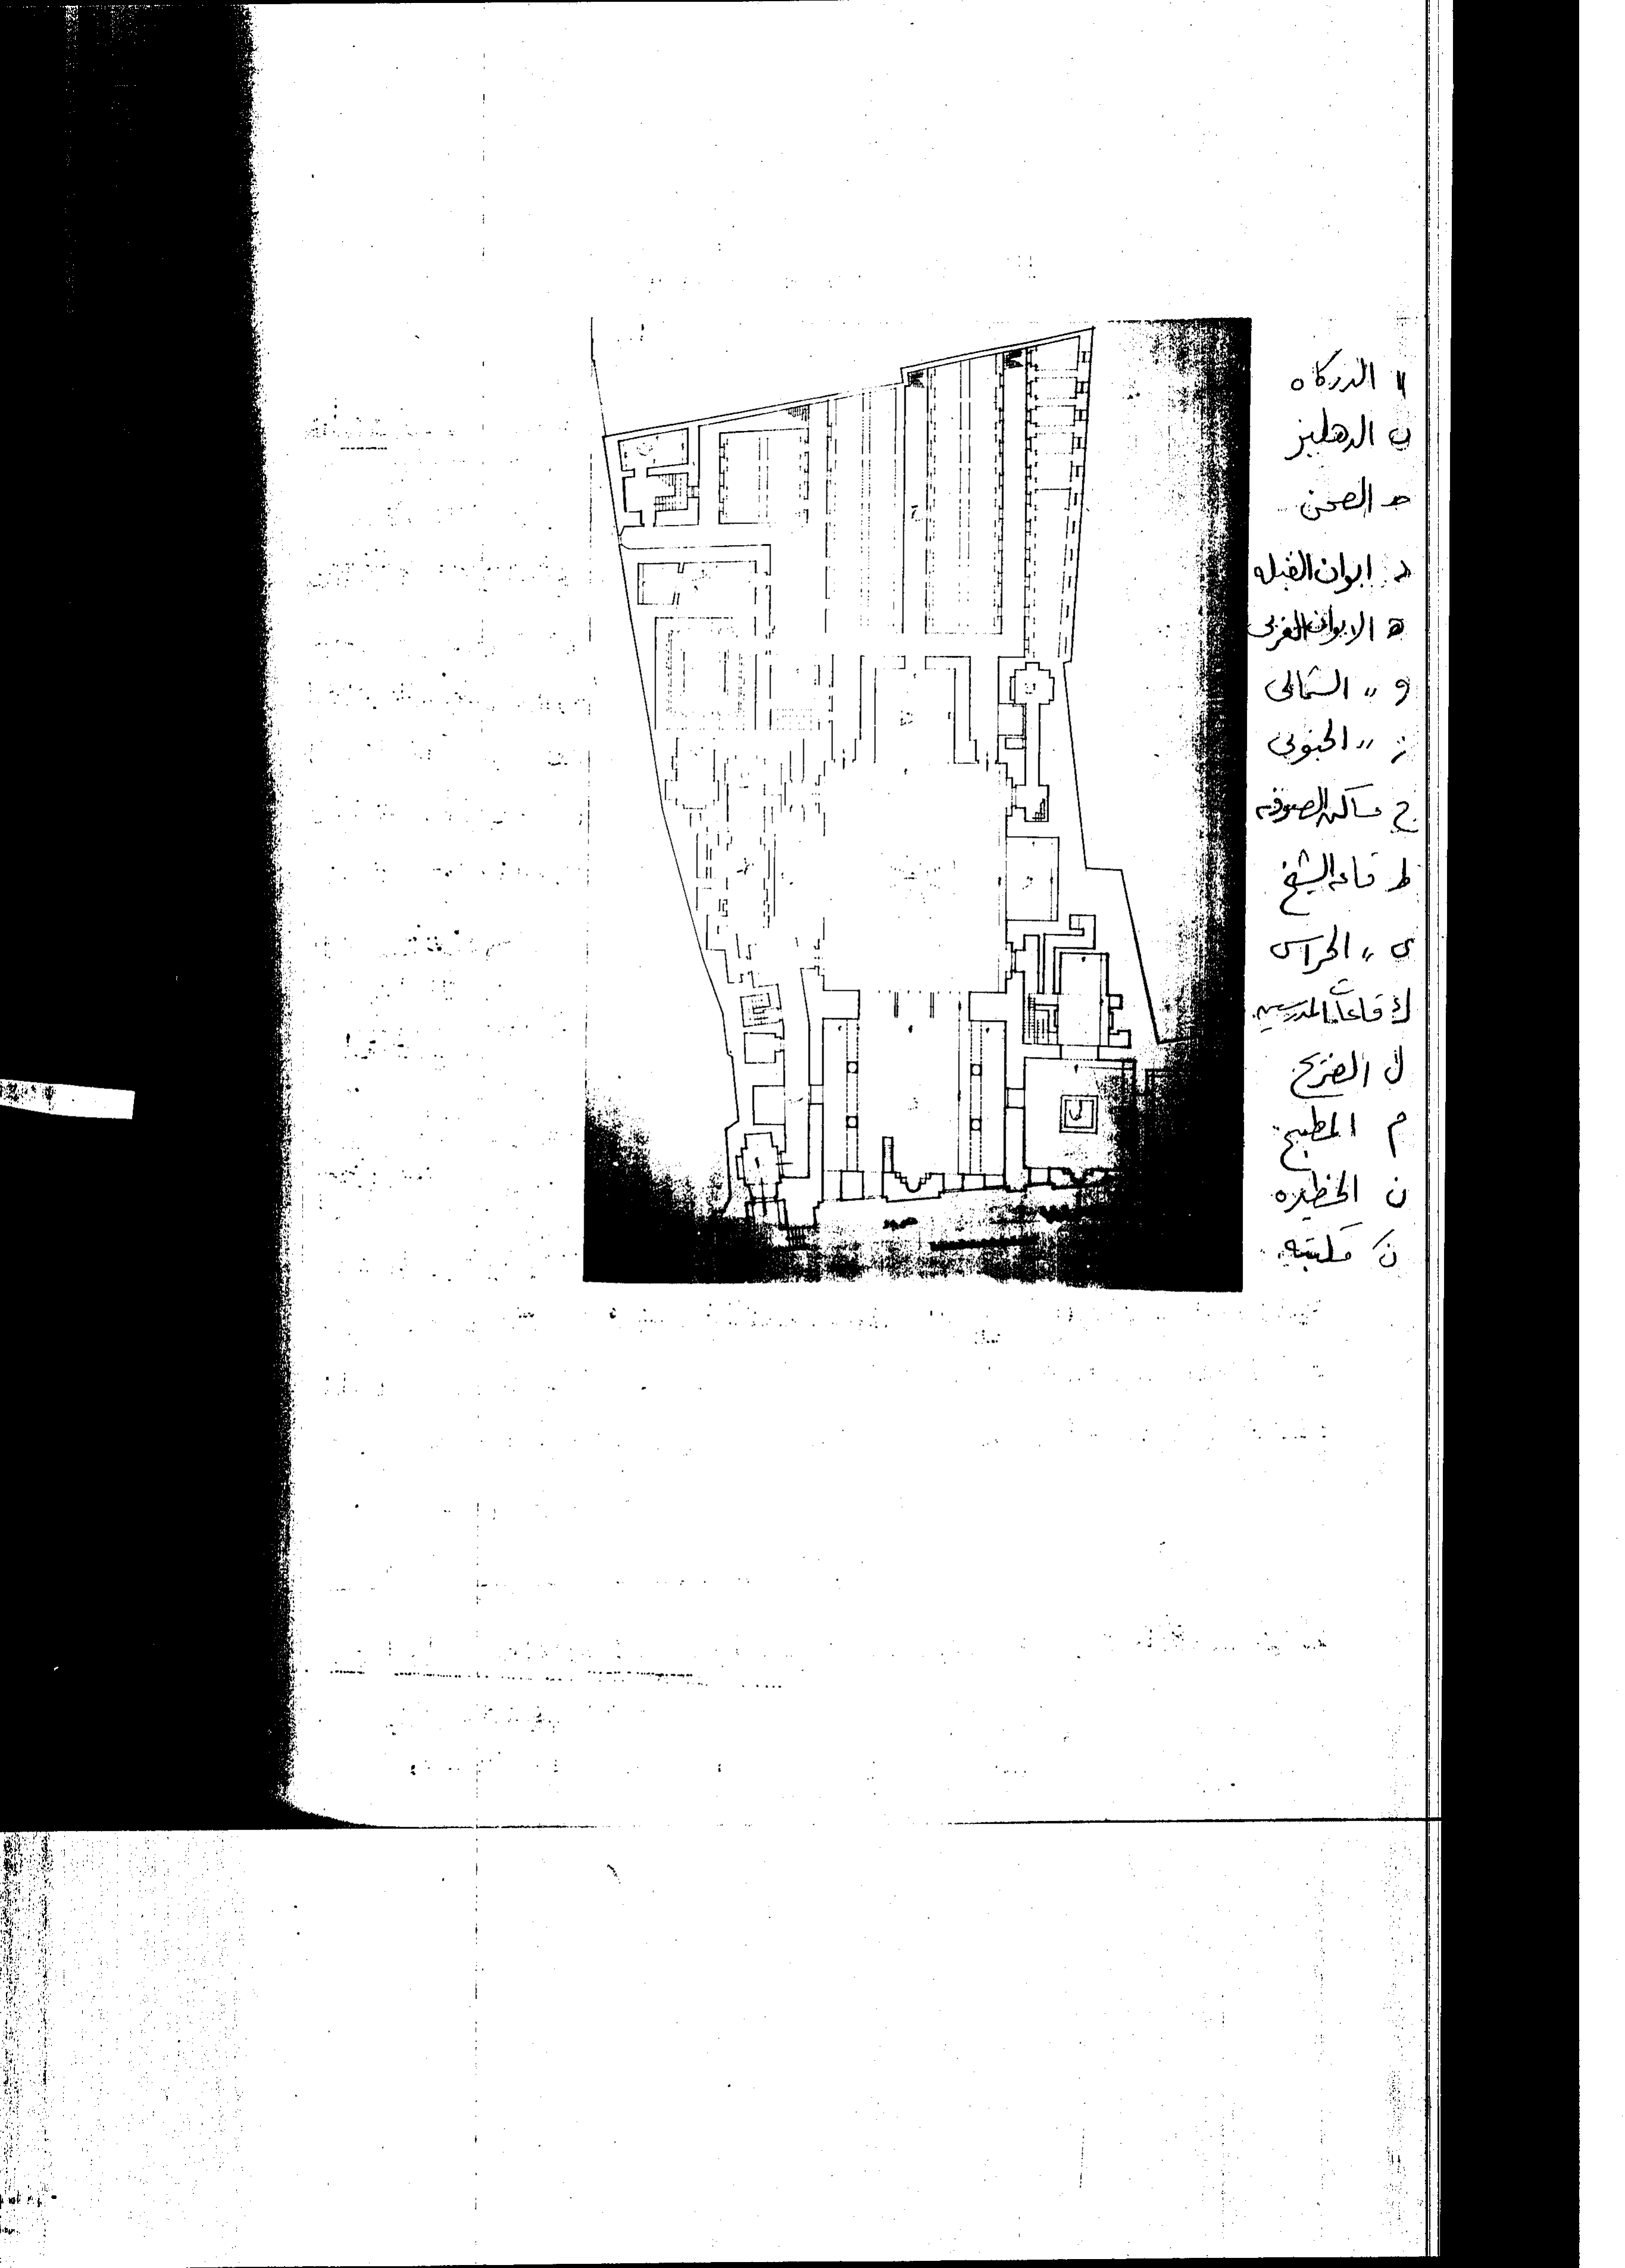 ا الدركاه
ب الدهليز
حـ الصحن
د ايوان القبله
ه الايوان الغربى
و ,, الشمالى
ز ,, الجنوبى
ح مساكن الصوفيه
ط قاعة الشيخ
ى ,, الحراس
ك قاعات المدرسين
ل الضريح
م المطبخ
ن الحظيره